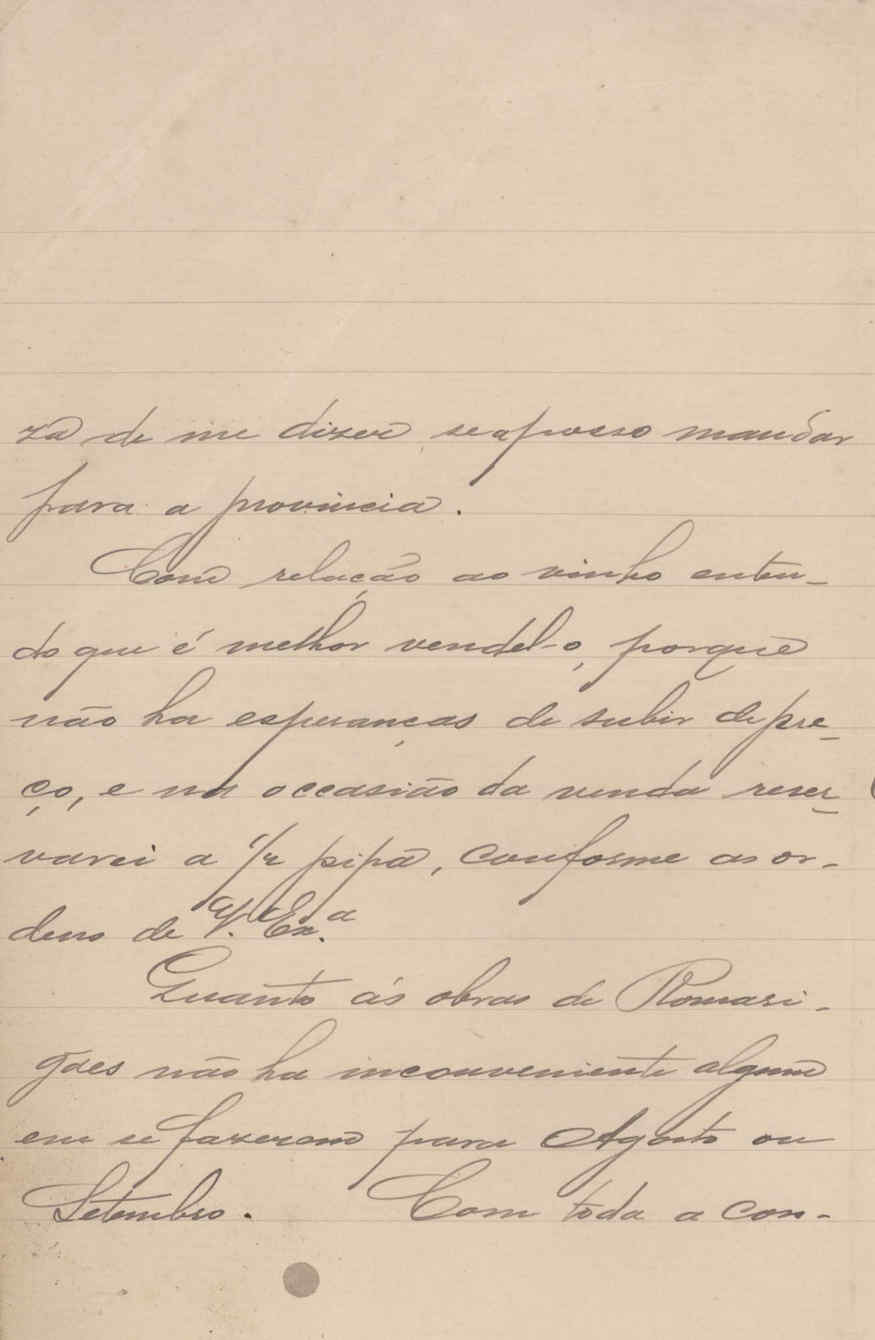 za de me dizer, se a posso mandar
para a provincia.
Com relação ao vinho enten-
do que é melhor vendel-o, porque
não ha esperanças de subir de pre-
ço, e na occasião da venda reser-
varei a 1/2 pipa, conforme as or-
dens de V. Ex.ª
Quanto ás obras de Romari-
gães não ha inconveniente algum
em se fazerem para Agosto ou
Setembro. Com toda a con-